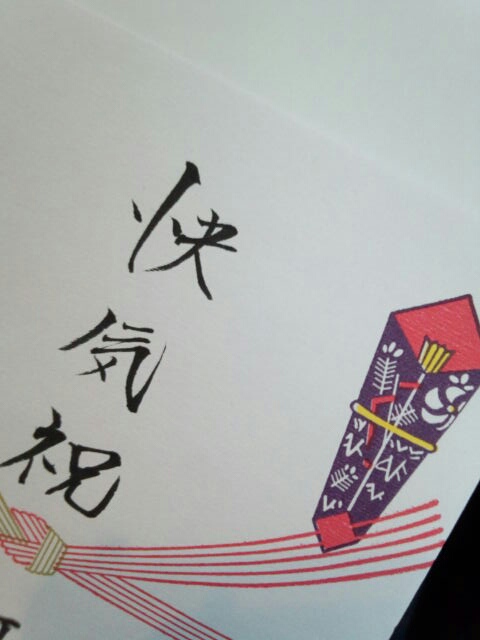 快気祝